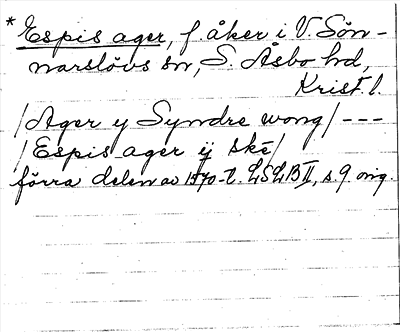 * Espis ager, f. åker i V. Sön-
narslövs sn, S. Åsbo hd,
Krist. l.
/Ager y Syndre wong/ ---
/Espis ager ÿ skē/
förra delen av 1570-t. LSLB II, s. 9 orig.